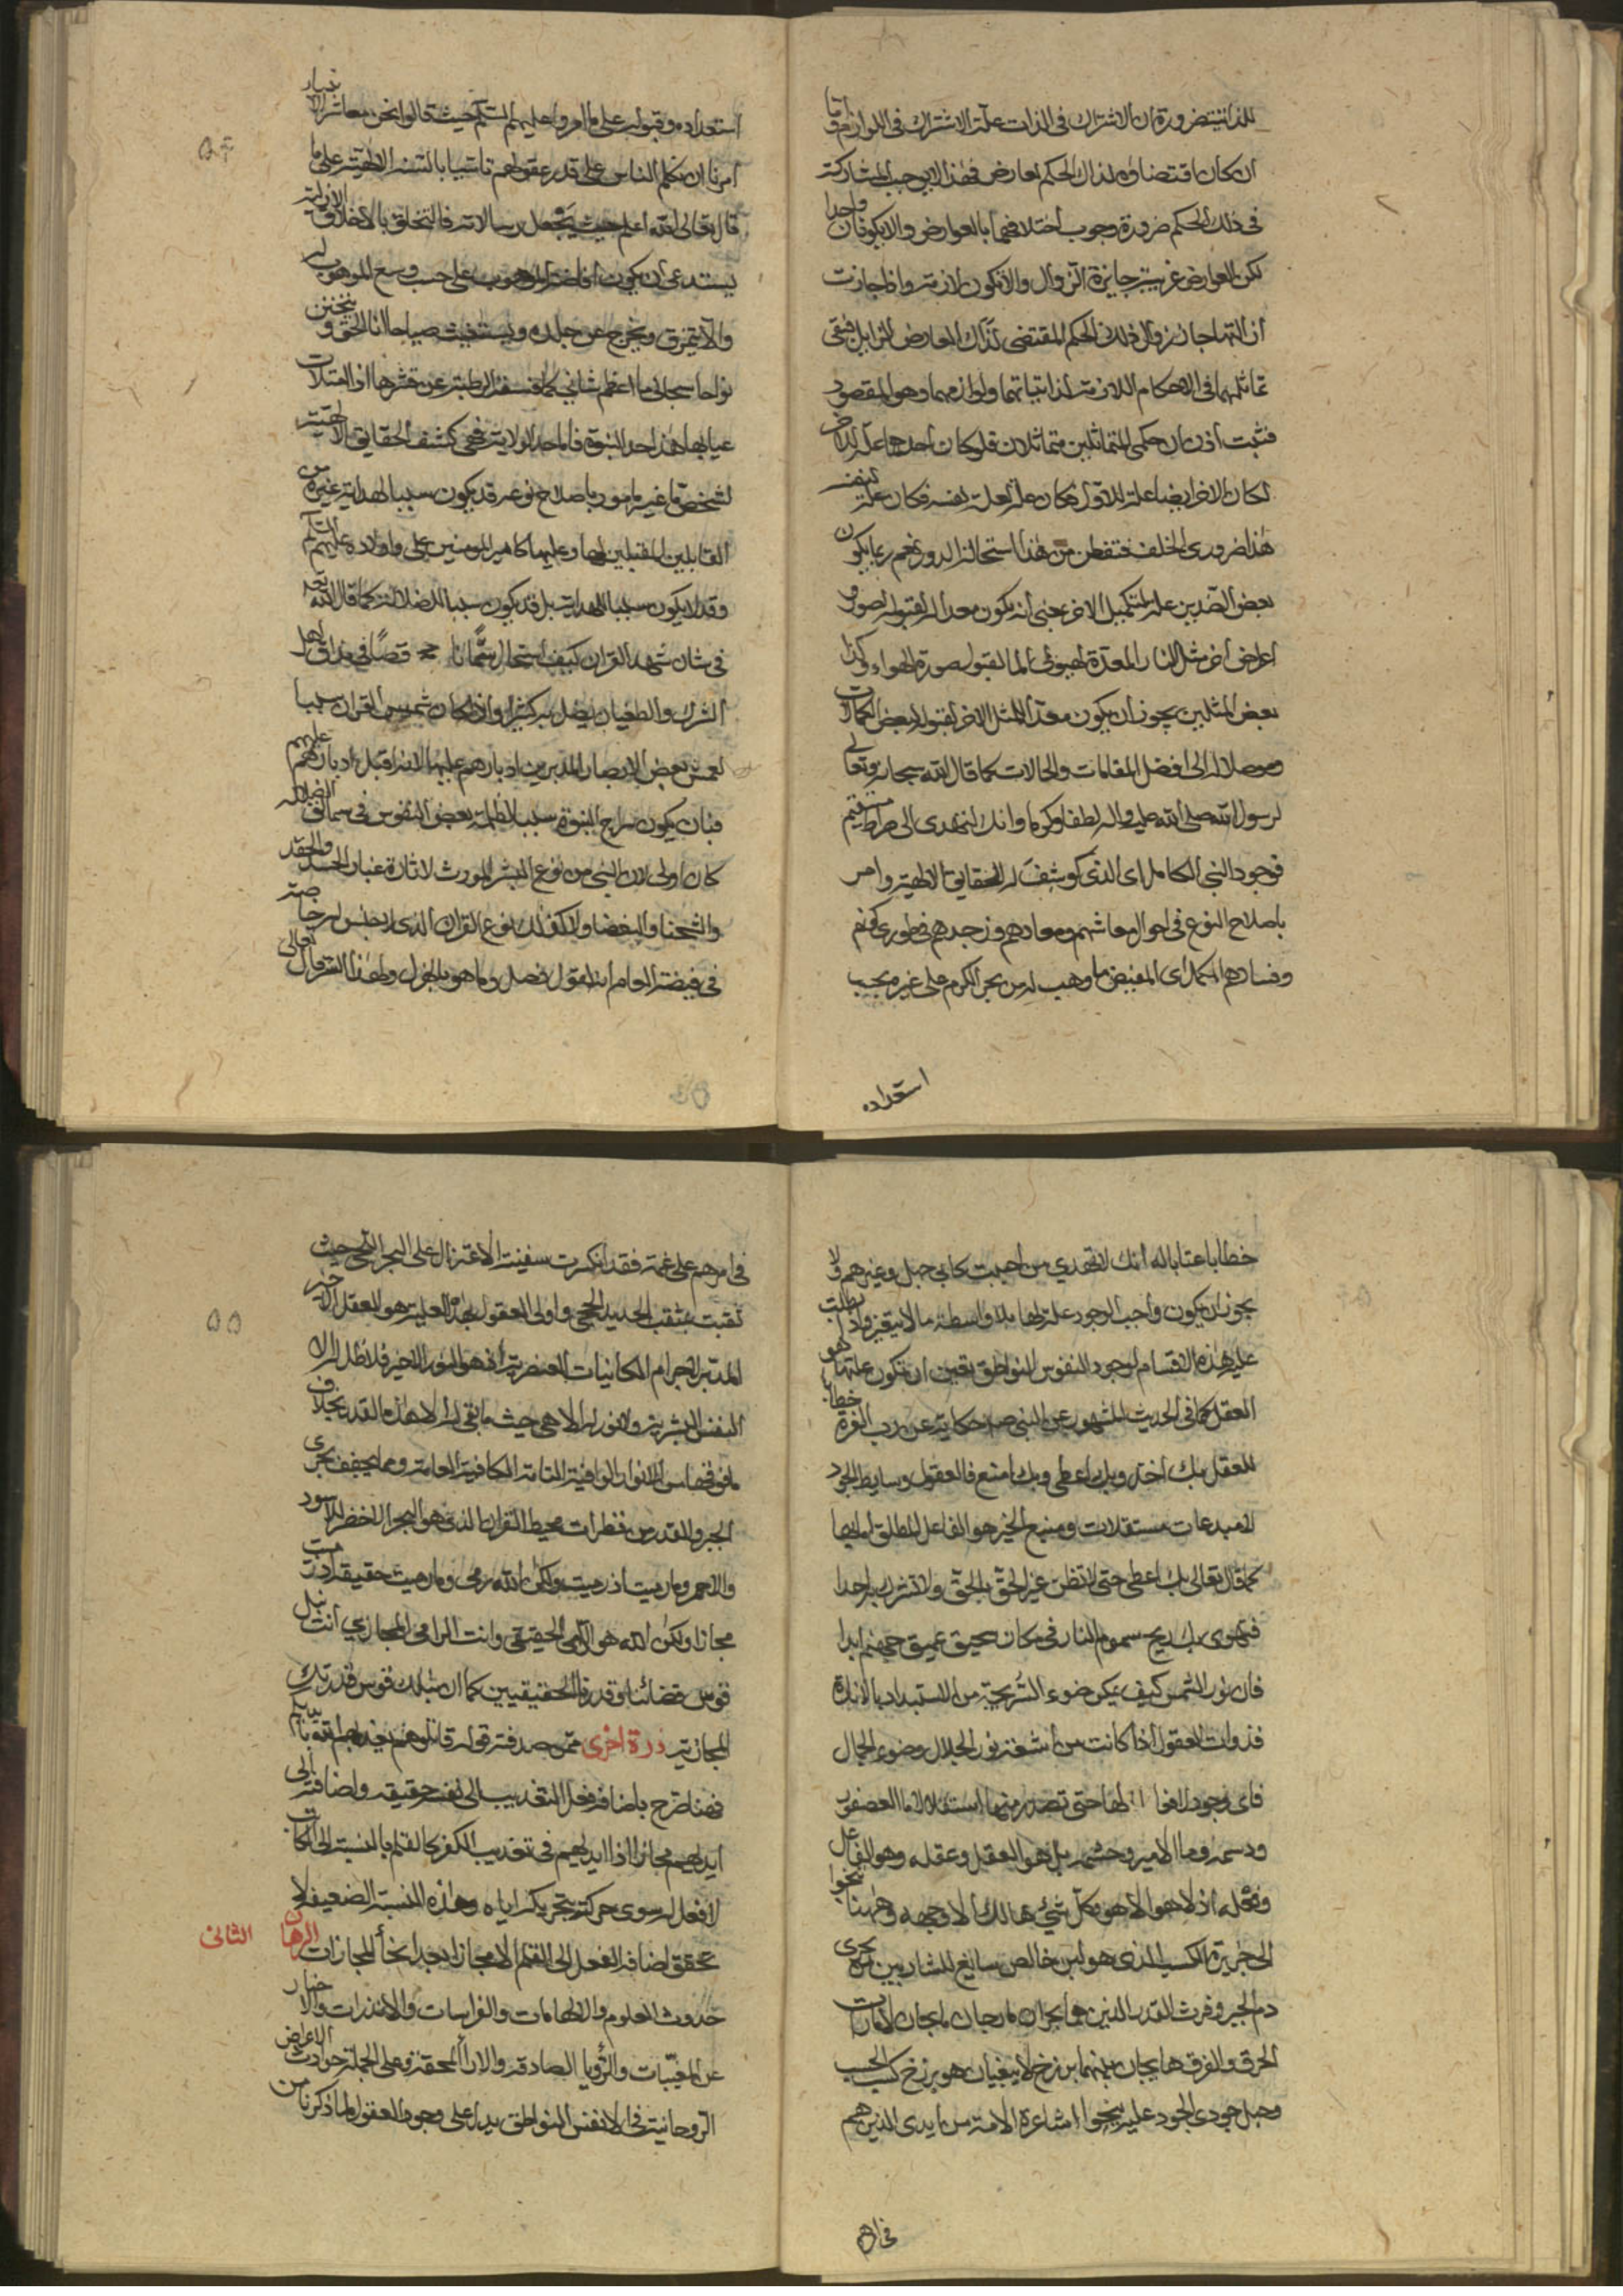 للذاتيتين ضرورة ان الاشتراك في الذات علة الاشتراك في اللوازم واما
ان كان اقتضاؤه لذلك الحكم لعارض فهذا لا يوجب المشاركة
في ذلك الحكم ضرورة وجوب اختلافهما بالعوارض والا لكونان واحدا
لكن العوارض غريبة جايزة الزوال والا تكون لازمة واذا جازت
ازالتها جاز زوال ذلك الحكم المقتضى لذلك العارض الزايل فبقى
تماثلهما في الاحكام اللازمة لذاتياتهما ولوازمهما وهو المقصود
فثبت اذن ان حكمى المتماثلين متماثلان فلو كان احدهما علة لذاته
لكان الاخر ايضا علة للاول فكان علة لعلة نفسه فكان علة لنفسه
هذا ضرورى الخلف فتفطن من هذا استحالة الدور نعم ربما يكون
بعض الضدين علة لتكميل الاخر بمعنى انه يكون معدا له لقبوله لصور او
اعراض اخر مثل النار المعدة لهيولى الما لقبول صورة الهواء وكذا
بعض المثلين يجوز ان يكون معدا للمثل الاخر لقبول لبعض الكمالات
وموصلا له الى افضل المقامات والحالات كما قال الله سبحانه وتعالى
لرسول الله صلى الله عليه واله لطفا وكرما وانك لتهدى الى صراط مستقيم
فوجود النبى الكامل اى الذى كوشف له الحقايق الالهية وامر
باصلاح النوع في احوال معاشهم ومعادهم وزجدهم في طورى كونهم
وفسادهم المكمل اى المفيض ما وهب له من بحر الكرم على غيره بحسب
استعداده
استعداده وقبوله على ما امروا عليهم السلم حيث قالوا نحن معاشر الانبياء
امرنا ان نكلم الناس على قدر عقولهم تاسيا بالسنة الالهية على ما
قال تعالى الله اعلم حيث يجعل رسالاته فالتخلق بالاخلاق الازلية
يستدعى ان يكون افاضة الموهوب على حسب وسع الموهوب له
والا يتمزق ويخرج عن جلده ويستغيث صياحا انا الحق و
نواحا سبحانى ما اعظم شانى كما قسفة الرطبة عن قشرها اذا امتلات
عيابها هذا حد النبوة فاما حد الولاية فهى كشف الحقايق الالهية
لشخص ما غير مامور باصلاح نوعه قد يكون سببا لهداية غيره من
القابلين المقبلين لها وعليها كامير المومنين على واولاده عليهم السلم
وقد لا يكون سببا للهداية بل قد يكون سببا للضلالة كما قال الله تعالى
في شان شهد القران كيف استحال سما نا قصا في مذاق اهل
الشرك والطغيان يضل به كثيرا واذا كان شمس القران سببا
لعمش بعض الابصار المدبرين ادبارهم عليها الانبا قبل ادبارهم عليهم
فبان يكون سراج النبوة سببا لظلمة بعض النفوس في سماالق الضلالة
كان اولى لان النبى من نوع البشر المورث لاثارة غبار الحسد والحقد
والشحنا والبغضا ولا كذلك نوع القران الذى لا يجانس له رحا صة
في فيضة العام انه لقول فصل وما هو بالهزل ولهذا السر قال تعالى
۵۴
خطابا عتابا له انك لا تهدي من احببت كابي جهل وغيرهم ولا
يجوز ان يكون واجب الوجود علة لها بلا واسطة ما لا يتغيز واذا بطلت
علية هذه الاقسام لوجود النفوس النواطق تعين ان تكون علتها هو
العقل كما في الحديث المشهور عن النبى ص حكاية عن رب العزة خطابا
للعقل بك اخذ وبك اعطى وبك امنع فالعقول وسايط الجود
لا مبدعات مستقلات ومنبع الخير هو الفاعل المطلق لمالها
كما قال تعالى بك اعطى حتى لا تظن غير الحق بالحق ولا تشرك به احدا
فتهوى بك ريح سموم النار في مكان سحيق عميق جهنم ابدا
فان نور الشمس كيف يمكن ضوء السريجة من الاستبداد بالانارة
فذوات العقول اذا كانت من اشعة نور الجلال وضوء الجمال
فاى وجود لها حتى تصدر منها استقلالا فما العصفور
ودسمه وما الامير وحشمه بل هو العقل وعقله وهو الفاعل
وفعله اذ لا هو الا هو وكل شيء هالك الا وجهه وههنا نجوا
الى جزيرة الكسب الذى هو لبن خالص سايغ للشاربين بحرى
دم الجبر وفرث القدر الذين هما بحران مارجان
الحرق والفرق هايجان بينهما برزخ لا يبغيان وهو برزخ كسب الحب
وجبل جودى الجود عليه ينجوا اشاعرة الامة من ايدى الذين هم
في امرهم
في امرهم على غمة فقد انكسرت سفينة الاعتزال على البحر اللجى حيث
ثقبت بمثقب الحديد الحجى واولى العقول بهذه العلية هو العقل الاخير
المدبر لاجرام الكاينات العنصرية اذ هو النور الاخير فلا ظل له الا
النفس البشرية ولا نور له الا هى حيث ما بقى له الا هذا القدر بخلاف
ما فوقها من الانوار الوافية التامة الكافية العامة ومما يخفف بحرى
الجبر والقدر من قطرات محيط القران الذى هو البحر الاخضر الاسود
والاحمر وما رميت اذ رميت ولكن الله رمى وما رميت حقيقة اذ رميت
مجازا ولكن الله هو الرامى الحقيقى وانت الرامى المجازي انت نبل
قوس قضائنا وقدرنا الحقيقيين كما ان مثلك قوس قدرتك
المجازية ذرة اخرى من صدفة قوله قاتلوهم يعذبهم الله بايديكم
فهنا صرح باضافة فعل التعذيب الى نفسه حقيقة واضافته الى
ايديهم مجازا اذ ايديهم في تعذيب الكفر كالقلم بالنسبة الى الكاتب
لا فعل له سوى حركة بتحريكه اياه وهذه النسبة الضعيفة لا
تحقق اضافة الفعل الى القلم الا مجازا بعد انحا المجازات البرهان الثانى
حدوث العلوم والالهامات والفراسات والانذرات والاخبار
عن المغيبات والرؤيا الصادقة والارا المحقة وعلى الجملة حوادث الاعراض
الروحانية في الانفس النواطق يدل على وجود العقول لما ذكرنا من
۵۵